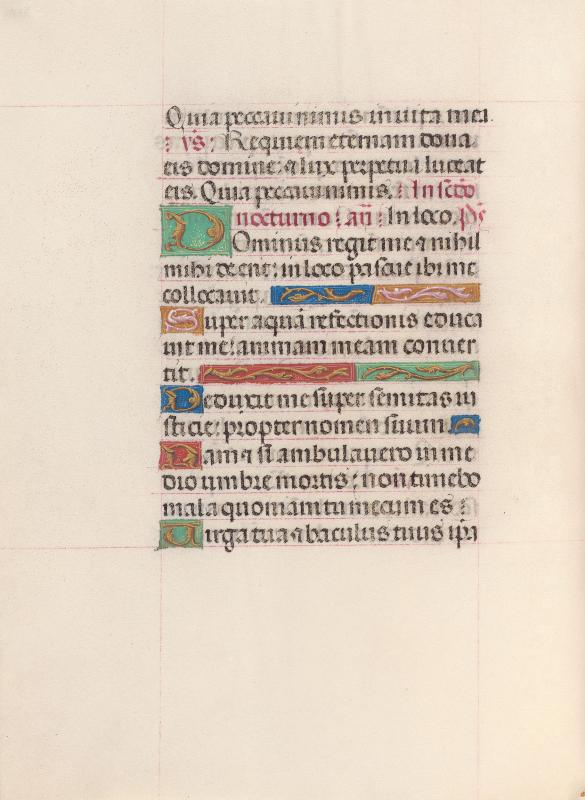 Quia peccauimnimis inuita mea.
: vs̃: Requiem eternam dona
eis domine: ⁊ lux perpetua luceat
eis. Quia peccauimnimis. : In scd̃o
nocturno : añ : In loco. Ps̃
Ominus regit me ⁊ nihil
mihi deerit: in loco pascue ibi me
collocauit.
Super aquã refectionis educa
uit me: animam meam conuer
tit.
Deduxit me super semitas iu
sticie: propter nomen suum.
Nam ⁊ si ambulauero in me
dio umbre mortis: non timebo
mala quoniam tu mecum es :
Uirga tua ⁊ baculus tuus ip̃a